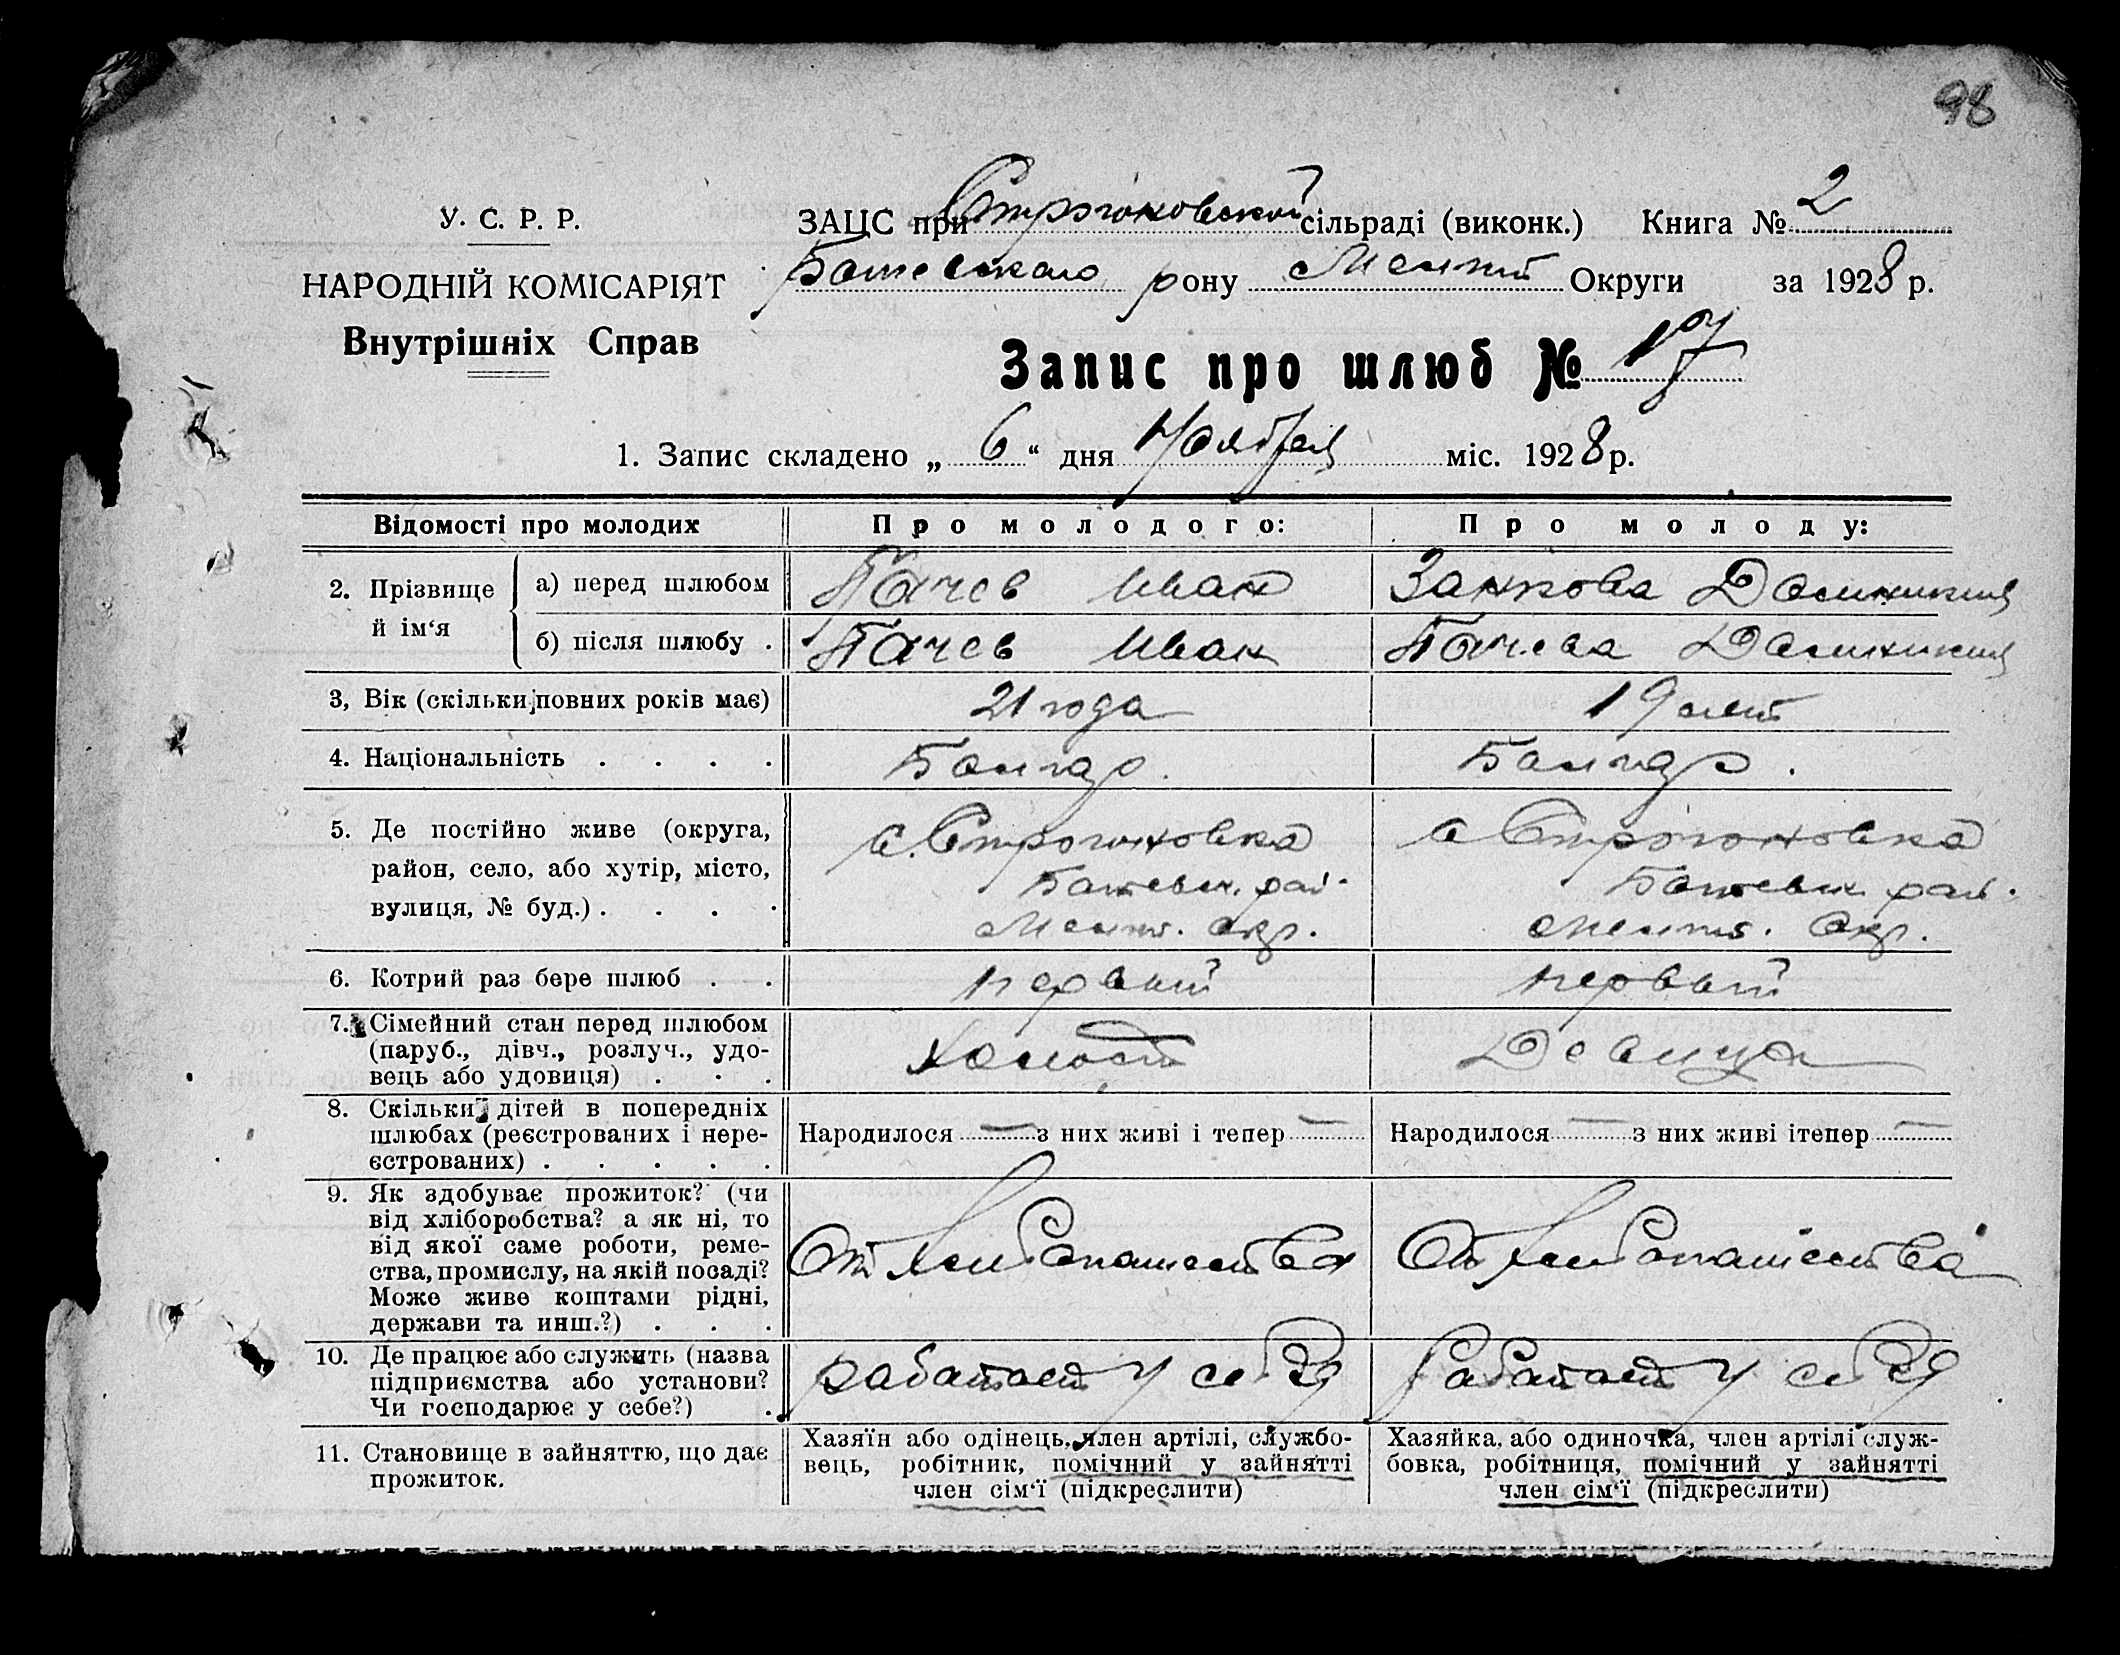 98
У. С. Р. Р.
НАРОДНІЙ КОМІСАРІЯТ
Внутрішніх Справ
ЗАЦС при Строгоновской сільраді (виконк.) Книга № 2
рону Мелит Округи за 1928 р.
Запис про шлюб № 17
1. Запис складено „ 6 “ дня Ноября міс. 1928 р.
Відомості про молодих Про молодого: Про молоду:
2. Прізвище й ім‘я
а) перед шлюбом Пачев Иван Занкова Доминикия
б) після шлюбу . Пачев Иван Пачева Доминикия
3, Вік (скільки повних років має) 21 года 19 лет
4. Національність . . . . Болгар. Болгар.
5. Де постійно живе (округа, район, село, або хутір, місто, вулиця, № буд.) . . . .
с. Строгоновка
рай.
Мелит. Окр.
с Строгоновка
рай.
Мелит. Окр.
6. Котрий раз бере шлюб . . первый первый
7. Сімейний стан перед шлюбом
(паруб., дівч., розлуч., удо-
вець або удовиця) . . .
Холост Девица
8. Скільки дітей в попередніх
шлюбах (реєстрованих і нере-
єстрованих) . . . . .
Народилося — з них живі і тепер — Народилося — з них живі ітепер —
9. Як здобуває прожиток? (чи
від хліборобства? а як ні, то
від якої саме роботи, реме-
ства, промислу, на якій посаді?
Може живе коштами рідні,
держави та инш.?) . . .
От хлебопашества От хлебопашества
10. Де працює або служить (назва
підприємства або установи?
Чи господарює у себе?) .
работает у себя работает у себя
11. Становище в зайняттю, що дає
прожиток.
Хазяїн або одінець, член артілі, службо-
вець, робітник, помічний у зайнятті
член сім‘ї (підкреслити)
Хазяйка, або одиночка, член артілі служ-
бовка, робітниця, помічний у зайнятті
член сім‘ї (підкреслити)